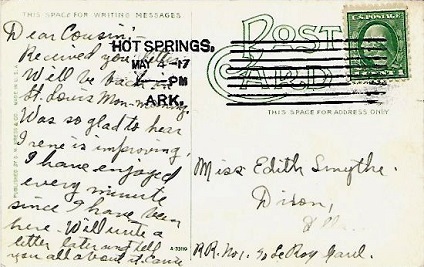 THIS SPACE FOR WRITING MESSAGES
Dear Cousin:-
Received you
Will be back in
St. Louis Mon. morning.
Was so glad to hear
Irene is improving.
I have enjoyed
every minute
since I have been
here. Will write a
letter later and tell
you all about it. Carrie
HOT SPRINGS,
MAY 4-17
PM
ARK.
POST
CARD
U.S. POSTAGE
THIS SPACE FOR ADDRESS ONLY
Miss Edith Smythe.
Dixon,
Ill.
R.R. No. 1. % LeRoy Gaul.
A-33119